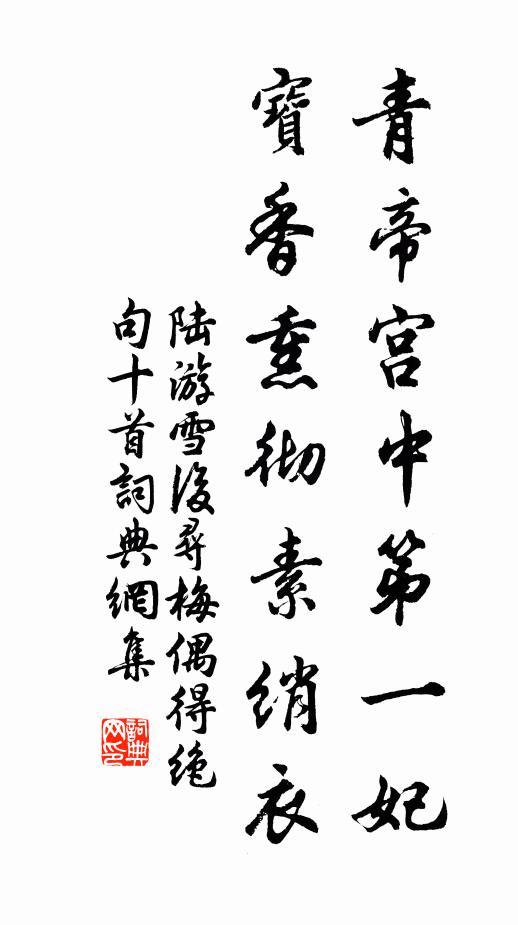 青帝宮中第一妃
寶香熏彻素綃衣
陆游雪後尋梅偶得绝
句十首詞典網集
詞典网印